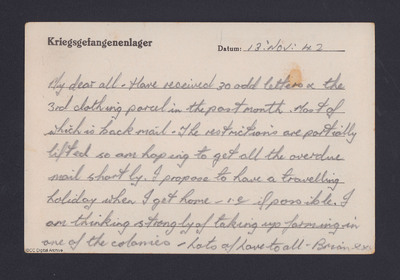 Kriegsgefangenenlager
Datum: 13. Nov. 42
My dear all - Have received 30 odd letters & the
3rd clothing parcel in the past month. Most of
which is back mail - The restrictions are partially
lifted so am hoping to get all the overdue
mail shortly. I propose to have a travelling
holiday when I get home - i.e. if possible. I
am thinking strongly of taking up farming in
one of the colonies - Lots of love to all - Brian xxx
IBCC Digital Archive